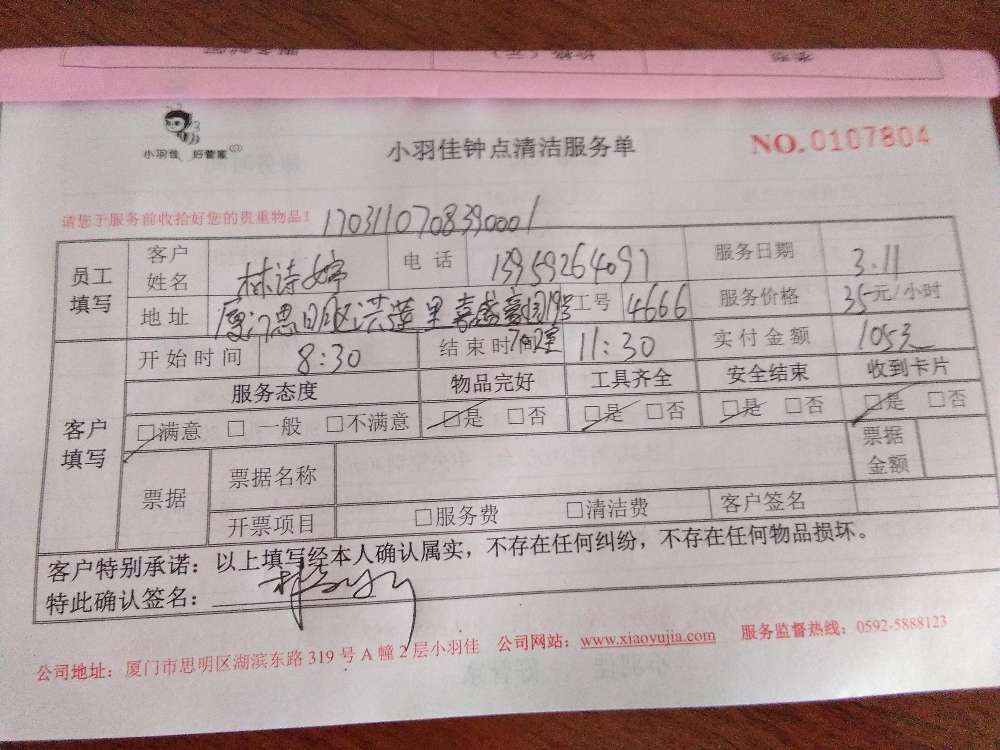 小羽佳 好管家
小羽佳钟点清洁服务单
NO.0107804
请您于服务前收拾好您的贵重物品!
1703110708390001
员工填写 客户姓名 林诗婷 电话 13959264097 服务日期 3.11
地址 厦门思明区洪莲里嘉盛豪园19号702室 工号 4666 服务价格 35元/小时
客户填写 开始时间 8:30 结束时间 11:30 实付金额 105元
服务态度 物品完好 工具齐全 安全结束 收到卡片
□满意 □一般 □不满意 □是 □否 □是 □否 □是 □否 □是 □否
票据 票据名称 票据金额
开票项目 □服务费 □清洁费 客户签名
客户特别承诺：以上填写经本人确认属实，不存在任何纠纷，不存在任何物品损坏。
特此确认签名：
公司地址：厦门市思明区湖滨东路 319 号 A 幢 2 层小羽佳 公司网站：www.xiaoyujia.com 服务监督热线：0592-5888123